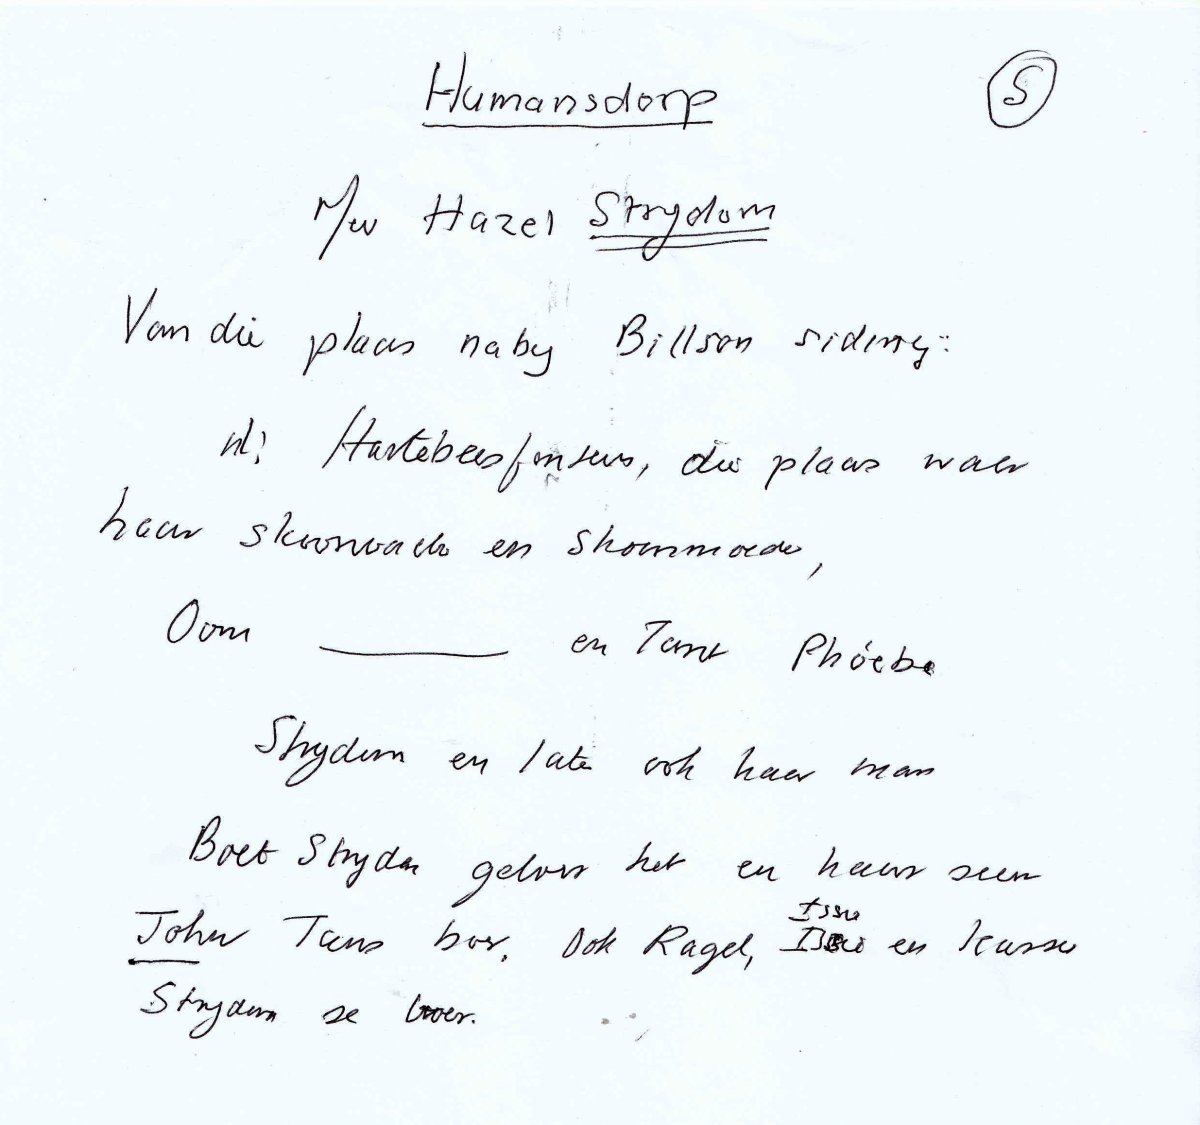 Humansdorp
S
M/w Hazel Strydom
Van die plaas naby Billson siding:
nl: Hartebeesfontein, die plaas waar
haar skoonvader en skoonmoeder,
Oom ______ en Tant Phóebe
Strydom en later ook haar man
Boet Strydom geboer het en haar seun
John Tans boer. Ook Ragel, Issie en
Strydom se broer.